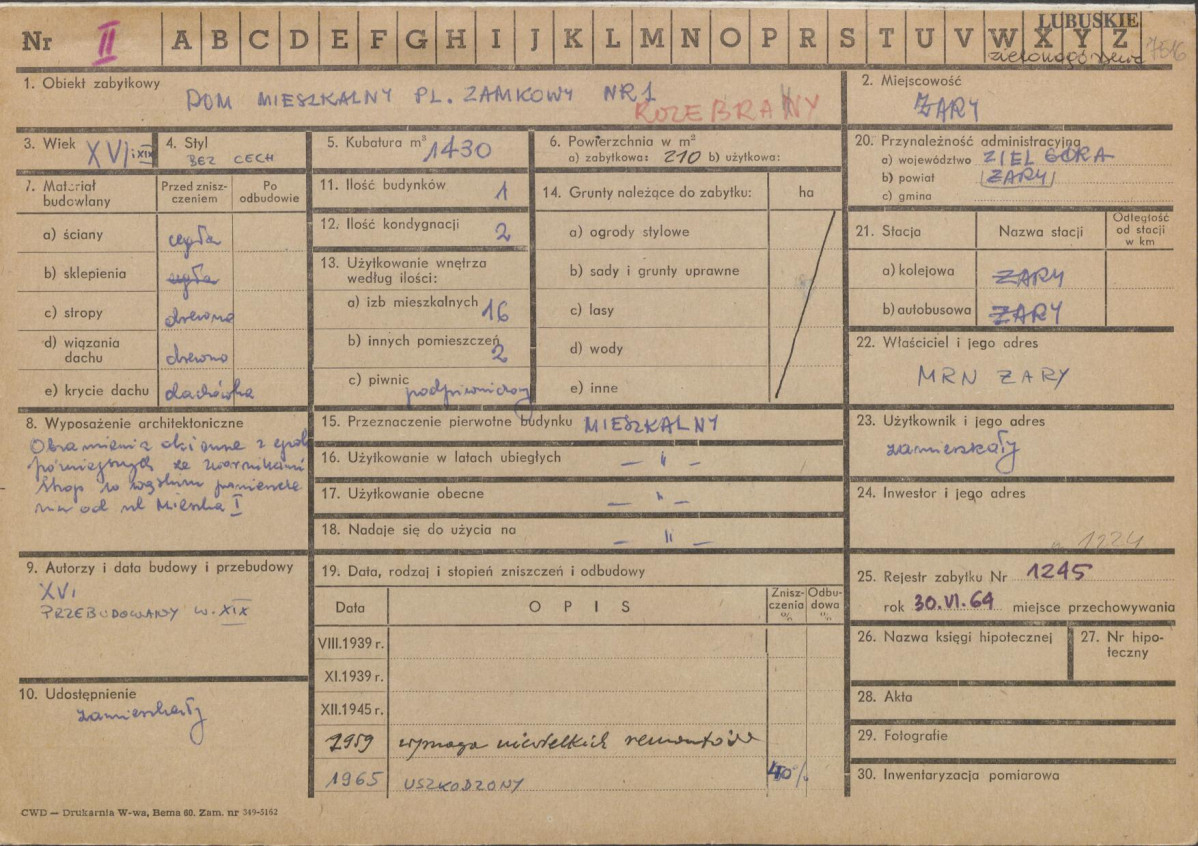 Nr II A B C D E F G H I J K L M N O P R S T U V W X Y Z
LUBUSKIE
zielonogórskie 7516
1. Obiekt zabytkowy
DOM MIESZKALNY PL. ZAMKOWY NR 1
ROZEBRANY
2. Miejscowość
ŻARY
3. Wiek XVI i XIX
4. Styl
BEZ CECH
5. Kubatura m³ 1430
6. Powierzchnia w m²
a) zabytkowa: 210 b) użytkowa:
20. Przynależność administracyjna
a) województwo ZIEL GÓRA
b) powiat ŻARY
c) gmina
7. Materiał budowlany
Przed zniszczeniem
Po odbudowie
a) ściany cegła
b) sklepienia cegła
c) stropy drewno
d) wiązania dachu drewno
e) krycie dachu dachówka
11. Ilość budynków 1
12. Ilość kondygnacji 2
13. Użytkowanie wnętrza według ilości:
a) izb mieszkalnych 16
b) innych pomieszczeń 2
c) piwnic podpiwniczony
14. Grunty należące do zabytku: ha
a) ogrody stylowe
b) sady i grunty uprawne
c) lasy
d) wody
e) inne
21. Stacja Nazwa stacji Odległość od stacji w km
a) kolejowa ŻARY
b) autobusowa ŻARY
22. Właściciel i jego adres
MRN ŻARY
8. Wyposażenie architektoniczne
Obramienia okienne z
ze zwornikami
strop w
od ul Mieszka I
15. Przeznaczenie pierwotne budynku MIESZKALNY
16. Użytkowanie w latach ubiegłych — " —
17. Użytkowanie obecne — " —
18. Nadaje się do użycia na — " —
23. Użytkownik i jego adres
zamieszkały
24. Inwestor i jego adres
1224
9. Autorzy i data budowy i przebudowy
XVI
PRZEBUDOWANY W. XIX
19. Data, rodzaj i stopień zniszczeń i odbudowy
Data OPIS Zniszczenia % Odbudowa %
VIII.1939 r.
XI.1939 r.
XII.1945 r.
1959 wymaga niewielkich remontów
1965 USZKODZONY 40%
25. Rejestr zabytku Nr 1245
rok 30.VI.64 miejsce przechowywania
26. Nazwa księgi hipotecznej
27. Nr hipoteczny
10. Udostępnienie
zamieszkały
28. Akta
29. Fotografie
30. Inwentaryzacja pomiarowa
CWD — Drukarnia W-wa, Bema 60. Zam. nr 349-5162